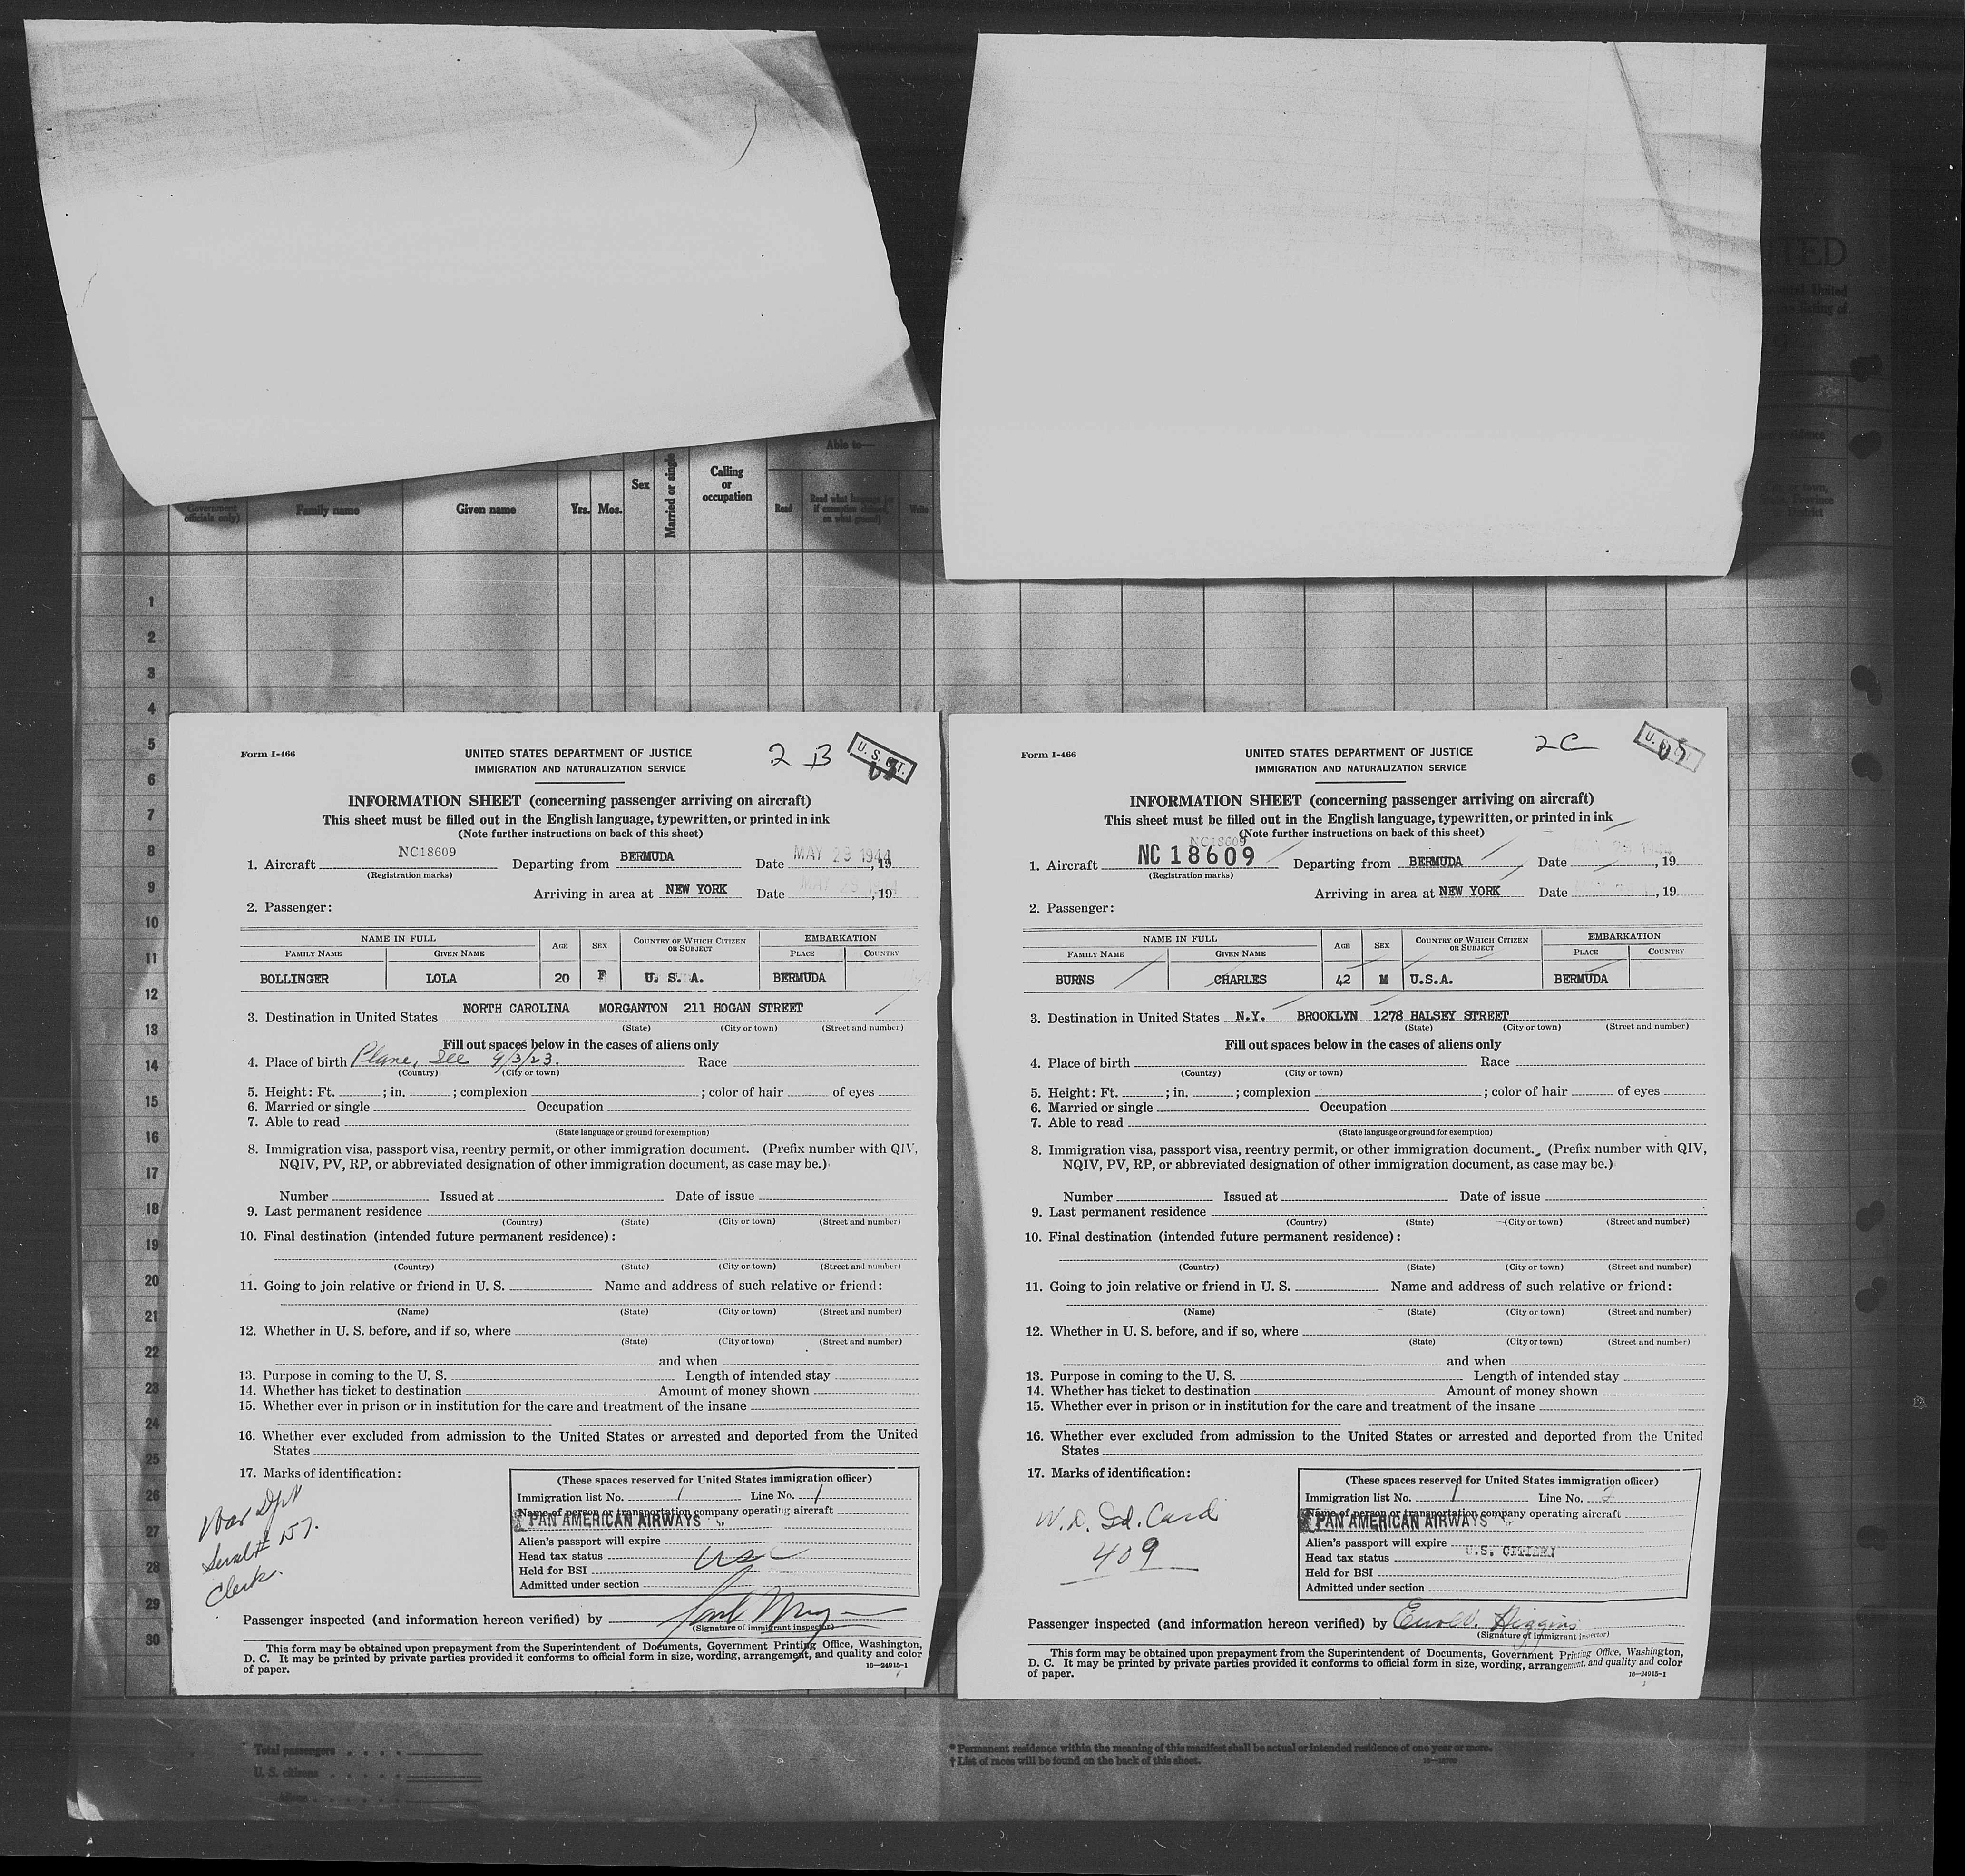 TED
United
listing of
Able to—
Sex
Married or single
Calling
or
occupation
Government
officials only)
Family name
Given name
Yrs.
Mos.
Read
Read what language
if exemption claimed,
on what ground)
Write
residence
or town,
Province
District
1
2
3
4
5
6
7
8
9
10
11
12
13
14
15
16
17
18
19
20
21
22
23
24
25
26
27
28
29
30
Form I-466
UNITED STATES DEPARTMENT OF JUSTICE
IMMIGRATION AND NATURALIZATION SERVICE
2 B
U. S. CIT.
INFORMATION SHEET (concerning passenger arriving on aircraft)
This sheet must be filled out in the English language, typewritten, or printed in ink
(Note further instructions on back of this sheet)
1. Aircraft NC18609 Departing from BERMUDA Date MAY 29 1944, 19
(Registration marks)
Arriving in area at NEW YORK Date MAY 29 1944, 19
2. Passenger:
NAME IN FULL AGE SEX COUNTRY OF WHICH CITIZEN OR SUBJECT EMBARKATION
FAMILY NAME GIVEN NAME PLACE COUNTRY
BOLLINGER LOLA 20 F U. S. A. BERMUDA
3. Destination in United States NORTH CAROLINA MORGANTON 211 HOGAN STREET
(State) (City or town) (Street and number)
Fill out spaces below in the cases of aliens only
4. Place of birth Plane, See 9/3/23. Race
(Country) (City or town)
5. Height: Ft. ; in. ; complexion ; color of hair of eyes
6. Married or single Occupation
7. Able to read
(State language or ground for exemption)
8. Immigration visa, passport visa, reentry permit, or other immigration document. (Prefix number with QIV,
NQIV, PV, RP, or abbreviated designation of other immigration document, as case may be.)
Number Issued at Date of issue
9. Last permanent residence
(Country) (State) (City or town) (Street and number)
10. Final destination (intended future permanent residence):
(Country) (State) (City or town) (Street and number)
11. Going to join relative or friend in U. S. Name and address of such relative or friend:
(Name) (State) (City or town) (Street and number)
12. Whether in U. S. before, and if so, where
(State) (City or town) (Street and number)
and when
13. Purpose in coming to the U. S. Length of intended stay
14. Whether has ticket to destination Amount of money shown
15. Whether ever in prison or in institution for the care and treatment of the insane
16. Whether ever excluded from admission to the United States or arrested and deported from the United
States
17. Marks of identification:
War Dpt
Serial # 157.
Clerk.
(These spaces reserved for United States immigration officer)
Immigration list No. 1 Line No. 1
Name of person or transportation company operating aircraft
PAN AMERICAN AIRWAYS
Alien's passport will expire
Head tax status usc
Held for BSI
Admitted under section
Passenger inspected (and information hereon verified) by
(Signature of immigrant inspector)
This form may be obtained upon prepayment from the Superintendent of Documents, Government Printing Office, Washington,
D. C. It may be printed by private parties provided it conforms to official form in size, wording, arrangement, and quality and color
of paper.
16—24915-1
Form I-466
UNITED STATES DEPARTMENT OF JUSTICE
IMMIGRATION AND NATURALIZATION SERVICE
2C
INFORMATION SHEET (concerning passenger arriving on aircraft)
This sheet must be filled out in the English language, typewritten, or printed in ink
(Note further instructions on back of this sheet)
NC18609
1. Aircraft NC 18609 Departing from BERMUDA Date , 19
(Registration marks)
Arriving in area at NEW YORK Date , 19
2. Passenger:
NAME IN FULL AGE SEX COUNTRY OF WHICH CITIZEN OR SUBJECT EMBARKATION
FAMILY NAME GIVEN NAME PLACE COUNTRY
BURNS CHARLES 42 M U.S.A. BERMUDA
3. Destination in United States N.Y. BROOKLYN 1278 HALSEY STREET
(State) (City or town) (Street and number)
Fill out spaces below in the cases of aliens only
4. Place of birth Race
(Country) (City or town)
5. Height: Ft. ; in. ; complexion ; color of hair of eyes
6. Married or single Occupation
7. Able to read
(State language or ground for exemption)
8. Immigration visa, passport visa, reentry permit, or other immigration document. (Prefix number with QIV,
NQIV, PV, RP, or abbreviated designation of other immigration document, as case may be.)
Number Issued at Date of issue
9. Last permanent residence
(Country) (State) (City or town) (Street and number)
10. Final destination (intended future permanent residence):
(Country) (State) (City or town) (Street and number)
11. Going to join relative or friend in U. S. Name and address of such relative or friend:
(Name) (State) (City or town) (Street and number)
12. Whether in U. S. before, and if so, where
(State) (City or town) (Street and number)
and when
13. Purpose in coming to the U. S. Length of intended stay
14. Whether has ticket to destination Amount of money shown
15. Whether ever in prison or in institution for the care and treatment of the insane
16. Whether ever excluded from admission to the United States or arrested and deported from the United
States
17. Marks of identification:
W.D. Id. Card
409
(These spaces reserved for United States immigration officer)
Immigration list No. 1 Line No. 2
Name of person or transportation company operating aircraft
PAN AMERICAN AIRWAYS
Alien's passport will expire
Head tax status U.S. CITIZEN
Held for BSI
Admitted under section
Passenger inspected (and information hereon verified) by Higgins
(Signature of immigrant inspector)
This form may be obtained upon prepayment from the Superintendent of Documents, Government Printing Office, Washington,
D. C. It may be printed by private parties provided it conforms to official form in size, wording, arrangement, and quality and color
of paper.
16—24915-1
Total passengers
U. S. citizens
Aliens
* Permanent residence within the meaning of this manifest shall be actual or intended residence of one year or more.
† List of races will be found on the back of this sheet.